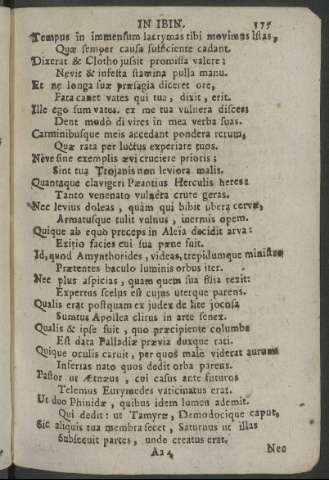 IN IBIN. 375
Tempus in immensum lacrymas tibi movimus istas,
Quæ semper causa sufficiente cadant.
Dixerat & Clotho jussit promissa valere;
Nevit & infesta stamina pulla manu.
Et ne longa suæ præsagia diceret ore,
Fata canet vates qui tua, dixit, erit.
Ille ego sum vates. ex me tua vulnera disces:
Dent modò di vires in mea verba suas.
Carminibusque meis accedant pondera rerum,
Quæ rata per luctus experiare tuos.
Neve sine exemplis ævi cruciere prioris;
Sint tua Trojanis non leviora malis.
Quantaque clavigeri Pæantius Herculis heres
Tanto venenato vulnera crure geras.
Nec levius doleas, quàm qui bibit ubera cervæ,
Armatusque tulit vulnus, inermis opem.
Quique ab equo præceps in Aleia decidit arva:
Exitio facies cui sua pæne fuit.
Id, quod Amynthorides, videas, trepidumque ministro
Prætentes baculo luminis orbus iter.
Nec plus aspicias, quam quem sua filia rexit:
Expertus scelus est cujus uterque parens.
Qualis erat postquam ex judex de lite jocosa
Sumtus Apollea clirus in arte senex.
Qualis & ipse fuit, quo præcipiente columba
Est data Palladiæ prævia duxque rati.
Quique oculis caruit, per quos male viderat aurum
Inferias nato quos dedit orba parens.
Pastor ut Ætnæus, cui casus ante futuros
Telemus Eurymedes vaticinatus erat.
Ut duo Phinidæ, quibus idem lumen ademit.
Qui dedit: ut Tamyræ, Demodocique caput,
Sic aliquis tua membra secet, Saturnus ut illas
Subsecuit partes, unde creatus erat.
Aa 4 Nec